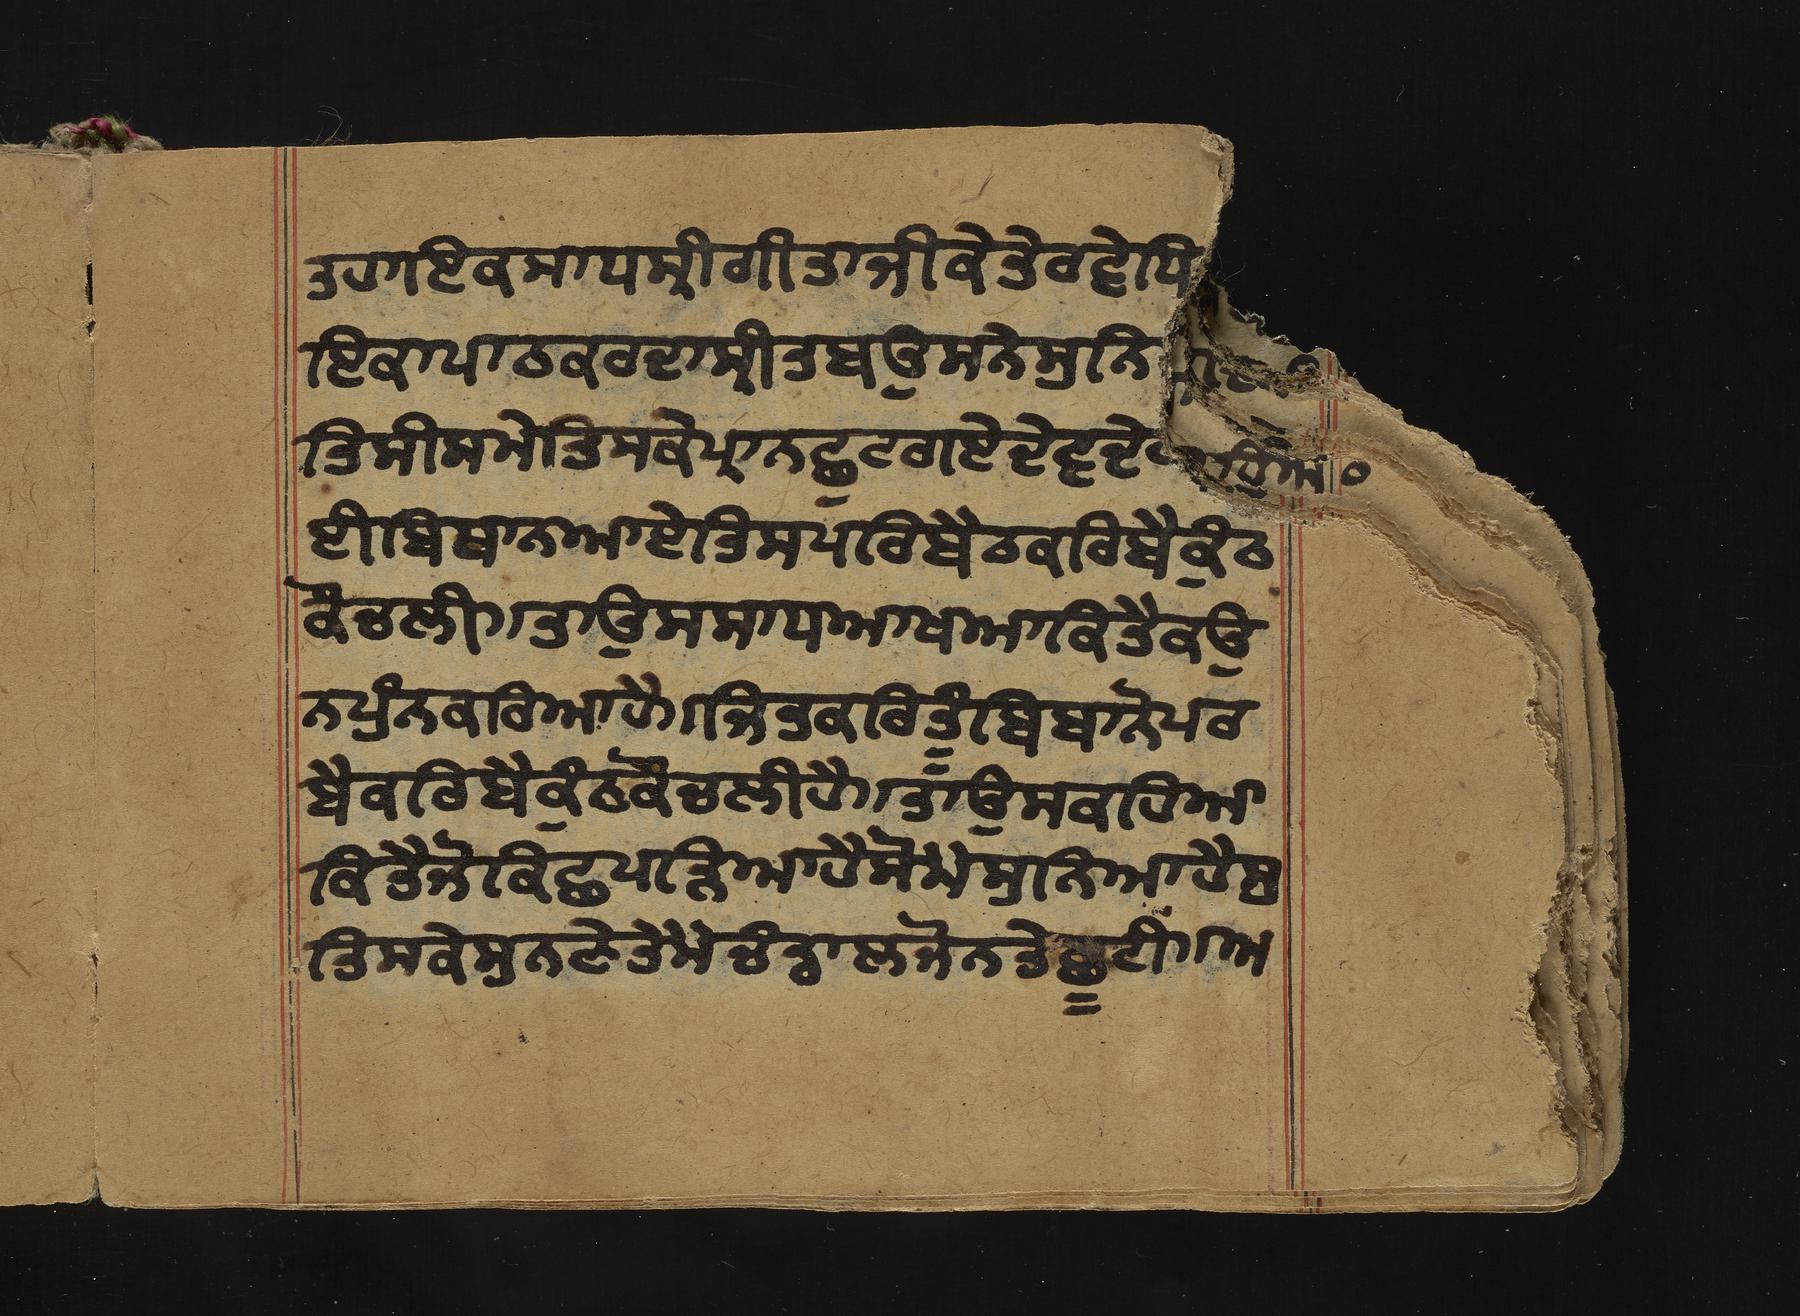 ਤਹਾਇਕਸਾਧਸ੍ਰੀਗੀਤਾਜੀਕੇਤੇਰਵ੍ਹੇਧਿ
ਇਕਾਪਾਠਕਰਦਾਸ੍ਰੀਤਬਉਸਨੇਸੁਨਿ
ਤਿਸੀਸਮੇਤਿਸਕੇਪ੍ਰਾਨਛੁਟਗਏਦੇਵਦੇ
ਈਬਿਬਾਨਆਏਤਿਸਪਰਿਬੈਠਕਰਿਬੈਕੁੰਠ
ਕੌਚਲੀ॥ਤਾਉਸਸਾਧਆਖਆਕਿਤੈਕਉ
ਨਪੁੰਨਕਰਿਆਹੈ॥ਜਿਤਕਰਿਤੂੰਬਿਬਾਨੋਪਰ
ਬੈਕਰਿਬੈਕੁੰਠਕੌਚਲੀਹੈ॥ਤਾਉਸਕਹਿਆ
ਕਿਤੈਜੋਕਿਛੁਪੜਿਆਹੈਸੋਮੈਸੁਨਿਆਹੈਬ
ਤਿਸਕੇਸੁਨਣੇਤੇਮੈਚੰਡਾਲਜੋਨਤੇਛੂਟੀ॥ਅ